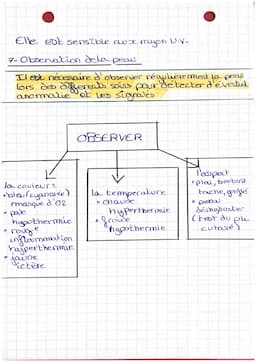 Elle est sensible aux rayon U.V.
7. Observation de la peau
Il est nécessaire d'observer régulièrement la peau
lors des différents soins pour détecter d'éventuel
anomalie et les signaler
OBSERVER
la couleurs
• bleu (cyanosée)
manque d'O2
• pale
hypothermie
• rouge
inflammation
hyperthermie
• jaune
ictère
la température
• chaude
hyperthermie
• froide
hypothermie
l'aspect
• plai, boutons
tache, greffe
• peau
déshydrater
(test du pli
cutané)